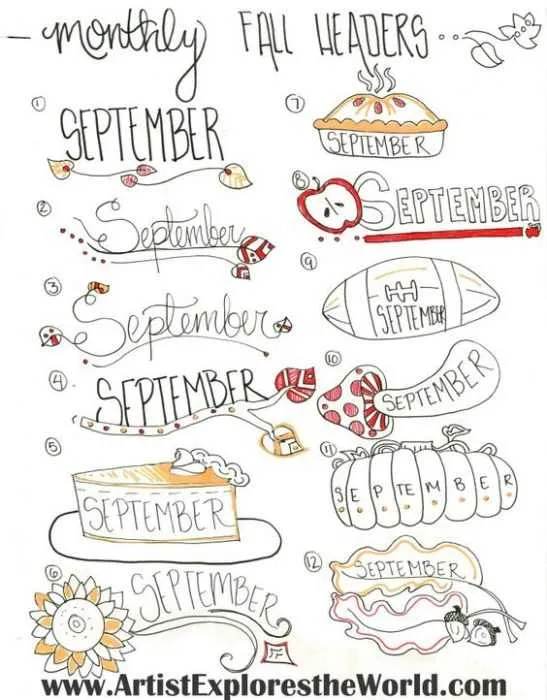 monthly FALL HEADERS
1
SEPTEMBER
2
September
3
September
4
SEPTEMBER
5
SEPTEMBER
6
SEPTEMBER
7
SEPTEMBER
8
SEPTEMBER
9
SEPTEMBER
10
SEPTEMBER
11
SEPTEMBER
12
SEPTEMBER
JF
www.ArtistExplorestheWorld.com